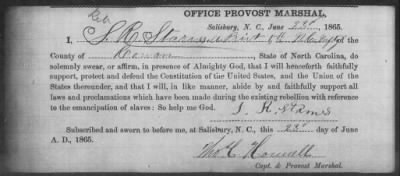 OFFICE PROVOST MARSHAL,
Salisbury, N. C., June 23d, 1865.
I, S. R. of the
County of Rowan, State of North Carolina, do
solemnly swear, or affirm, in presence of Almighty God, that I will henceforth faithfully
support, protect and defend the Constitution of the United States, and the Union of the
States thereunder, and that I will, in like manner, abide by and faithfully support all
laws and proclamations which have been made during the existing rebellion with reference
to the emancipation of slaves: So help me God.
Subscribed and sworn to before me, at Salisbury, N. C., this 23d day of June
A. D., 1865.
Capt. & Provost Marshal.